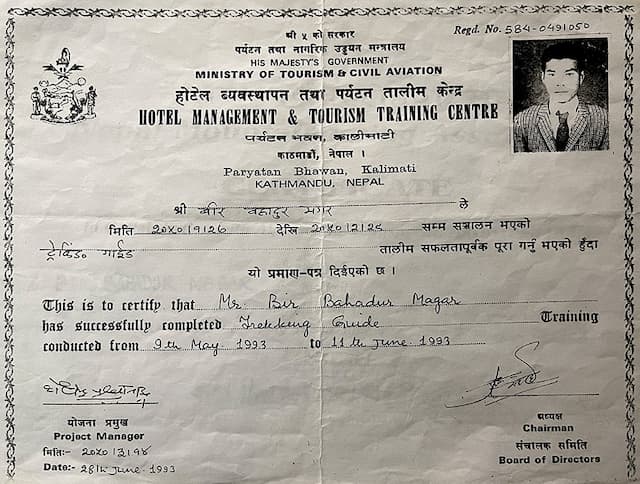 Regd. No. 584-0491050
श्री ५ को सरकार
पर्यटन तथा नागरिक उड्डयन मन्त्रालय
HIS MAJESTY'S GOVERNMENT
MINISTRY OF TOURISM & CIVIL AVIATION
होटेल व्यवस्थापन तथा पर्यटन तालीम केन्द्र
HOTEL MANAGEMENT & TOURISM TRAINING CENTRE
पर्यटन भवन, कालीमाटी
काठमाडौं, नेपाल ।
Paryatan Bhawan, Kalimati
KATHMANDU, NEPAL
श्री वीर वहादुर मगर ले
मिति २०५०।१।२६ देखि २०५०।२।२९ सम्म सञ्चालन भएको
ट्रेकिङ गाईड तालीम सफलतापूर्वक पूरा गर्नु भएको हुँदा
यो प्रमाण-पत्र दिईएको छ ।
This is to certify that Mr. Bir Bahadur Magar
has successfully completed Trekking Guide Training
conducted from 9th May 1993 to 11th June 1993
योजना प्रमुख
Project Manager
मितिः- २०५०।३।१४
Date:- 28th June 1993
अध्यक्ष
Chairman
संचालक समिति
Board of Directors